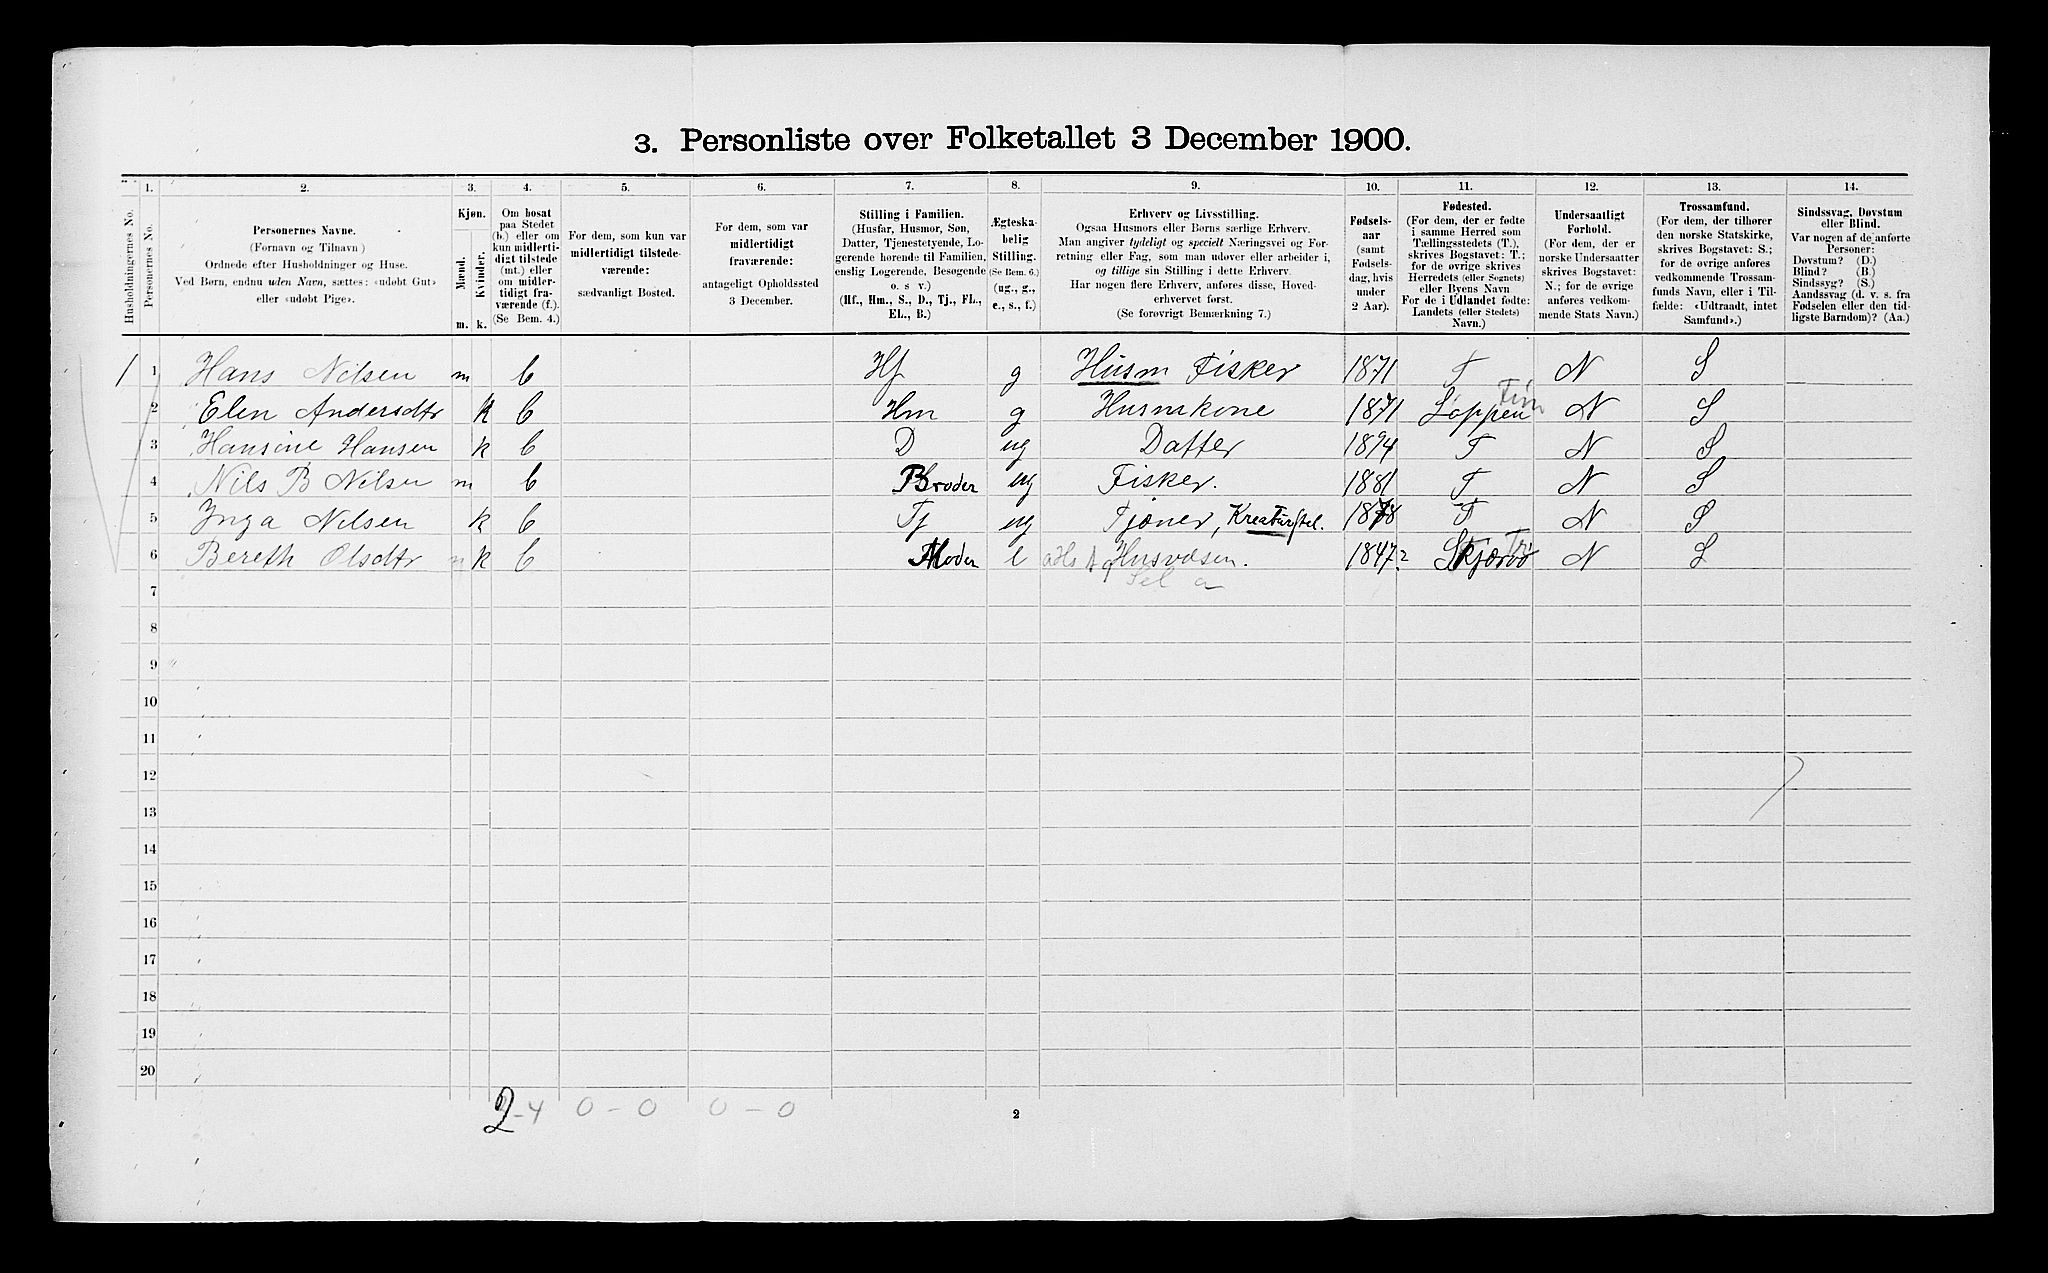 3. Personliste over Folketallet 3 December 1900.
1. 2. 3. 4. 5. 6. 7. 8. 9. 10. 11. 12. 13. 14.
Husholdningernes No.
Personernes No.
Personernes Navne.
(Fornavn og Tilnavn)
Ordnede efter Husholdninger og Huse.
Ved Børn, endnu uden Navn, sættes: «udøbt Gut»
eller «udøbt Pige».
Kjøn.
Mænd.
Kvinder.
m. k.
Om bosat
paa Stedet
(b.) eller om
kun midlerti-
digt tilstede
(mt.) eller
om midler-
tidigt fra-
værende (f.).
(Se Bem. 4.)
For dem, som kun var
midlertidigt tilstede-
værende:
sædvanligt Bosted.
For dem, som var
midlertidigt
fraværende:
antageligt Opholdssted
3 December.
Stilling i Familien.
(Husfar, Husmor, Søn,
Datter, Tjenestetyende, Lo-
gerende hørende til Familien,
enslig Logerende, Besøgende
o. s v.)
(Hf., Hm., S., D., Tj., FL.,
EL., B.)
Ægteska-
belig
Stilling.
(Se Bem. 6.)
(ug., g.,
e., s., f.)
Erhverv og Livsstilling.
Ogsaa Husmors eller Børns særlige Erhverv.
Man angiver tydeligt og specielt Næringsvei og For-
retning eller Fag, som man udøver eller arbeider i,
og tillige sin Stilling i dette Erhverv.
Har nogen flere Erhverv, anføres disse, Hoved-
erhvervet først.
(Se forøvrigt Bemærkning 7.)
Fødsels-
aar
(samt
Fødsels-
dag, hvis
under
2 Aar).
Fødested.
(For dem, der er fødte
i samme Herred som
Tællingsstedets (T.),
skrives Bogstavet: T.;
for de øvrige skrives
Herredets (eller Sognets)
eller Byens Navn
For de i Udlandet fødte:
Landets (eller Stedets)
Navn.)
Undersaatligt
Forhold.
(For dem, der er
norske Undersaatter
skrives Bogstavet:
N.; for de øvrige
anføres vedkom-
mende Stats Navn.)
Trossamfund.
(For dem, der tilhører
den norske Statskirke,
skrives Bogstavet: S.;
for de øvrige anføres
vedkommende Trossam-
funds Navn, eller i Til-
fælde: «Udtraadt, intet
Samfund».)
Sindssvag, Døvstum
eller Blind.
Var nogen af de anførte
Personer:
Døvstum? (D.)
Blind? (B.)
Sindssyg? (S.)
Aandssvag (d. v. s. fra
Fødselen eller den tid-
ligste Barndom)? (Aa.)
1 1 Hans Nilsen m b Hf g Husm Fisker 1871 T N S
2 Elen Andersdtr k b Hm g Husmkone 1871 Loppen Fin N S
3 Hansine Hansen k b D ug Datter 1894 T N S
4 Nils B Nilsen m b Broder ug Fisker. 1881 T N S
5 Inga Nilsen k b Tj ug Tjener, Kreaturstel. 1878 T N S
6 Bereth Olsdtr k b Moder e Husvæsen. 1847? Skjærvø Trø N S
7
8
9
10
11
12
13
14
15
16
17
18
19
20
2-4 0-0 0-0
2